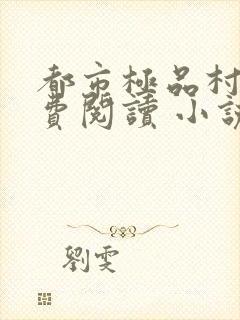 都市極品村
費閱讀 小說
劉雯